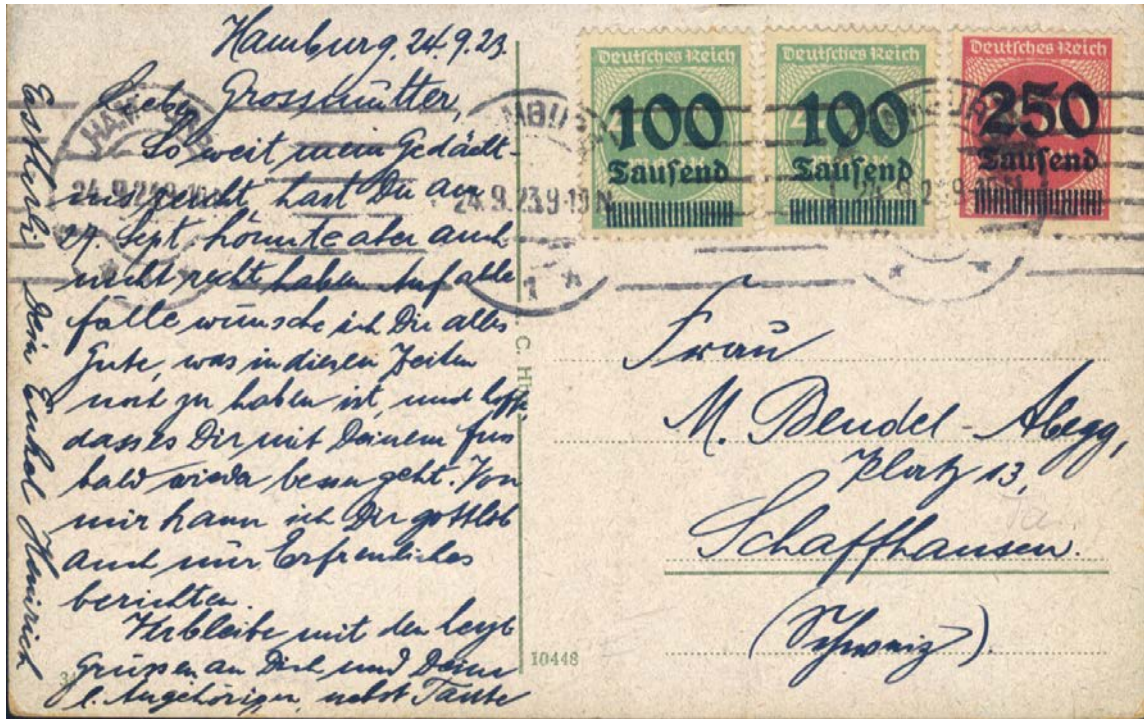 Hamburg, 24.9.23.
Liebe Grossmutter,
So weit mein Gedächt-
nis reicht hast Du am
27. Sept. könnte aber auch
nicht recht haben. Auf alle
fälle wünsche ich Dir alles
Gute, was in diesen Zeiten
noch zu haben ist, und hoffe
dass es Dir mit Deinem
bald wieder besser geht. Von
mir kann ich Dir gottlob
auch nur Erfreuliches
berichten.
Verbleibe mit den
Grüssen an Dich und Deine
l. Angehörigen, nebst Tante
Dein Enkel Heinrich
Deutsches Reich
100
Tausend
Deutsches Reich
100
Tausend
Deutsches Reich
250
Tausend
HAMBURG
24.9.23 9-10 N
1
Frau
M. Bendel-Abegg,
Platz 13,
Schaffhausen.
(Schweiz).
10448